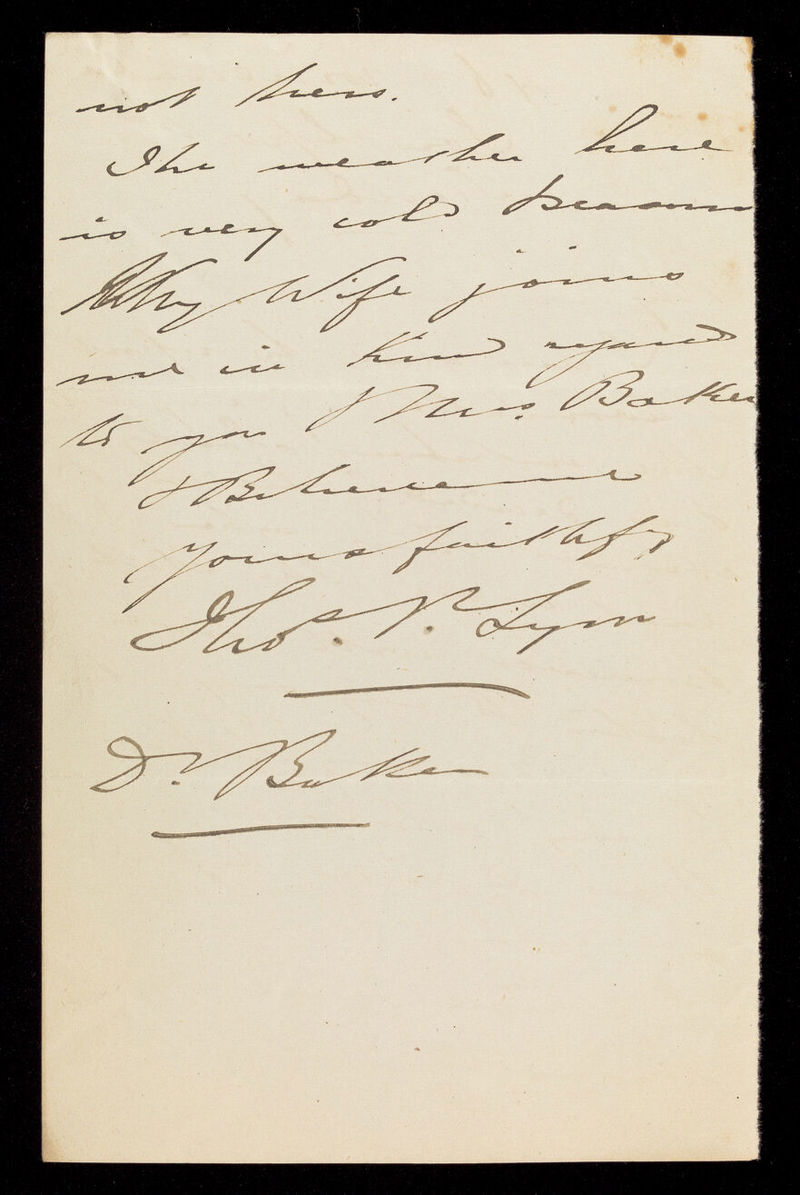 not hers.
The weather here
is very cold
My Wife joins
me in kind regard
to you & Mrs. Baker
& Believe me
Yours faithfy
Thos. P. Lynn
Dr. Baker